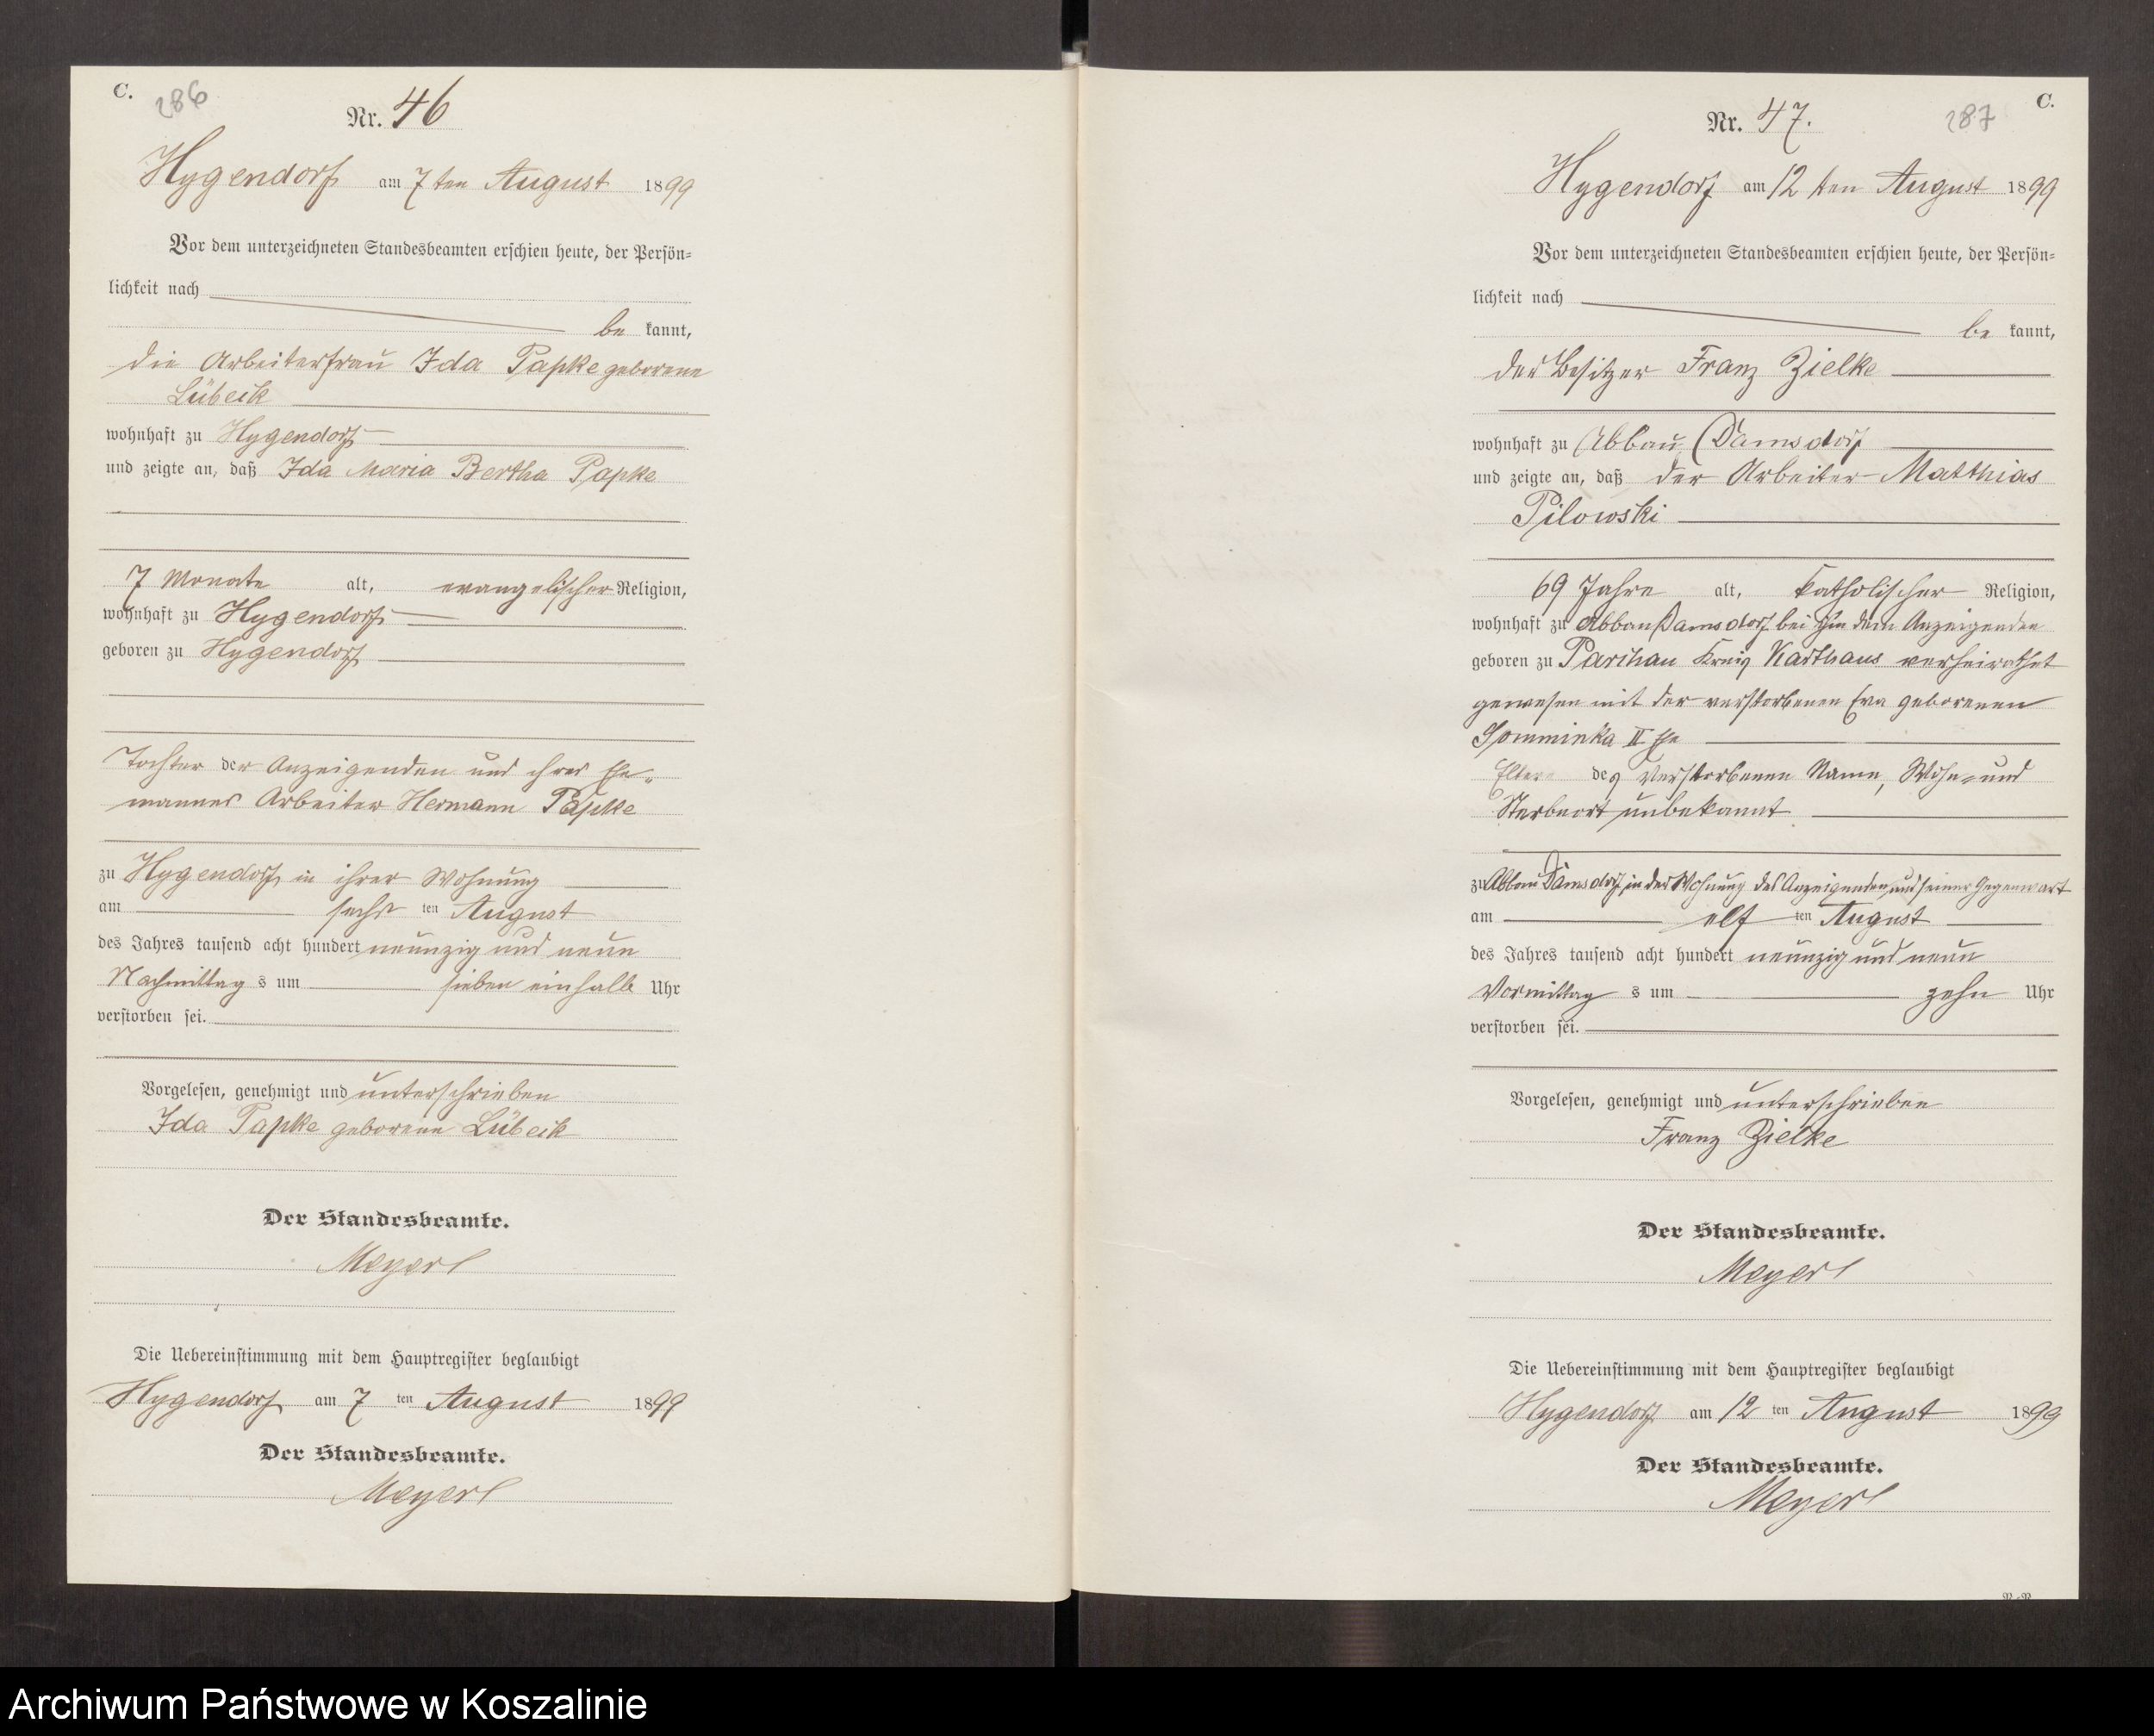 C.
286
Nr. 46
Hygendorf am 7ten August 1899
Vor dem unterzeichneten Standesbeamten erschien heute, der Persön-
lichkeit nach
be kannt,
die Arbeiterfrau Ida Papke geborene
Lübeck
wohnhaft zu Hygendorf
und zeigte an, daß Ida Maria Bertha Papke
7 Monate alt, evangelischer Religion,
wohnhaft zu Hygendorf
geboren zu Hygendorf
Tochter der Anzeigenden und ihres Ehe-
mannes Arbeiter Hermann Papke
zu Hygendorf, in ihrer Wohnung
am sechs ten August
des Jahres tausend acht hundert neunzig und neun
Nachmittag s um sieben einhalb Uhr
verstorben sei.
Vorgelesen, genehmigt und unterschrieben
Ida Papke geborene Lübeck
Der Standesbeamte.
Meyer
Die Uebereinstimmung mit dem Hauptregister beglaubigt
Hygendorf am 7 ten August 1899
Der Standesbeamte.
Meyer
C.
287
Nr. 47.
Hygendorf am 12ten August 1899
Vor dem unterzeichneten Standesbeamten erschien heute, der Persön-
lichkeit nach
be kannt,
der Besitzer Franz Zielke
wohnhaft zu Abbau Damsdorf
und zeigte an, daß der Arbeiter Matthias
Pilowski
69 Jahre alt, katholischer Religion,
wohnhaft zu Abbau Damsdorf bei ihm dem Anzeigenden
geboren zu Parchau Kreis Karthaus verheirathet
gewesen mit der verstorbenen Eva geborenen
II Ehe
Eltern des Verstorbenen Name, Wohn- und
Sterbeort unbekannt
zu Abbau Damsdorf, in der Wohnung des Anzeigenden, und seiner Gegenwart
am elf ten August
des Jahres tausend acht hundert neunzig und neun
Vormittag s um zehn Uhr
verstorben sei.
Vorgelesen, genehmigt und unterschrieben
Franz Zielke
Der Standesbeamte.
Meyer
Die Uebereinstimmung mit dem Hauptregister beglaubigt
Hygendorf am 12 ten August 1899
Der Standesbeamte.
Meyer
Archiwum Państwowe w Koszalinie